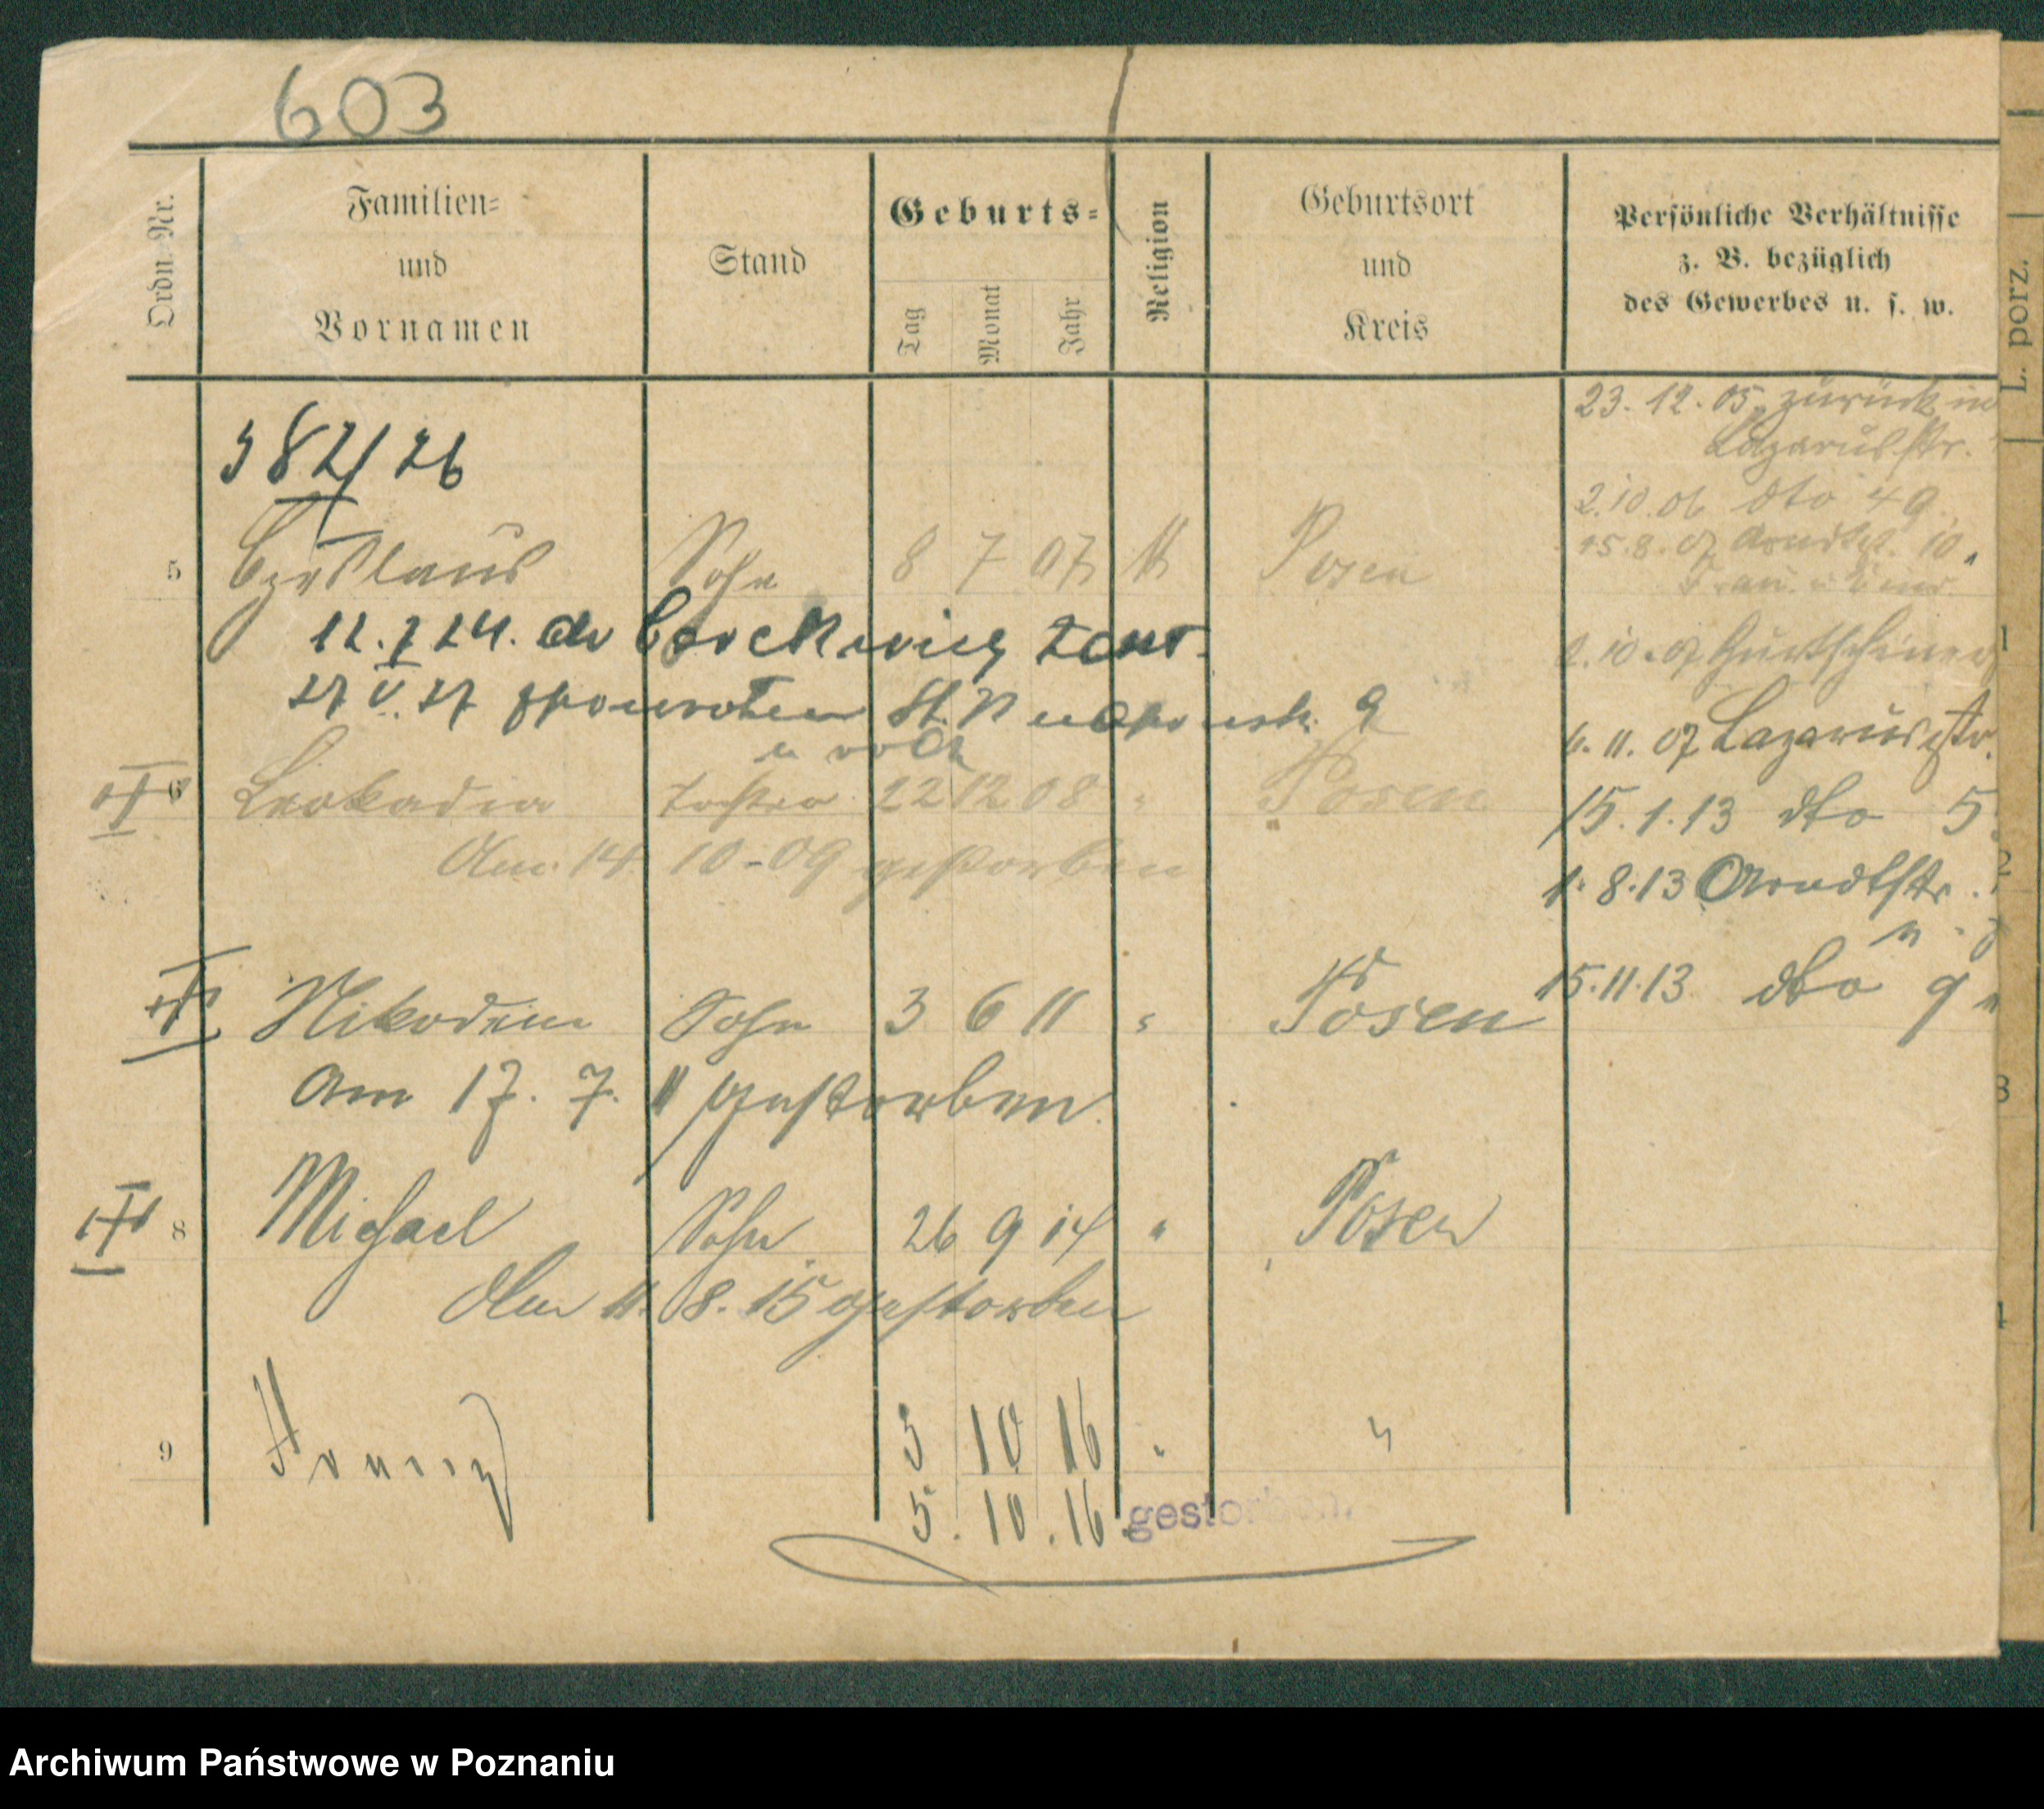 603
Ordn. Nr.
Familien-
und
Vornamen
Stand
Geburts-
Tag
Monat
Jahr
Religion
Geburtsort
und
Kreis
Persönliche Verhältnisse
z. B. bezüglich
des Gewerbes u. s. w.
L. porz.
23. 12. 05 zurück in
Lazarusstr.
382/26
2.10.06 dto 49
15.8.07 Arndtstr. 10
5 Czeslaus Sohn 8 7 07 K Posen
2.10.07
6. 11. 07 Lazarusstr.
6 Leokadia Tochter 22 12 08 " Posen
15.1.13 dto 5
Am 14. 10-09 gestorben
1.8.13 Arndtstr.
15.11.13 dto 9
Nikodem Sohn 3 6 11 " Posen
Am 17. 7. 11 gestorben.
8 Michael Sohn 26 9 14 " Posen
Am 11. 8. 15 gestorben
9 3 10 16 " "
5. 10. 16 gestorben.
Archiwum Państwowe w Poznaniu